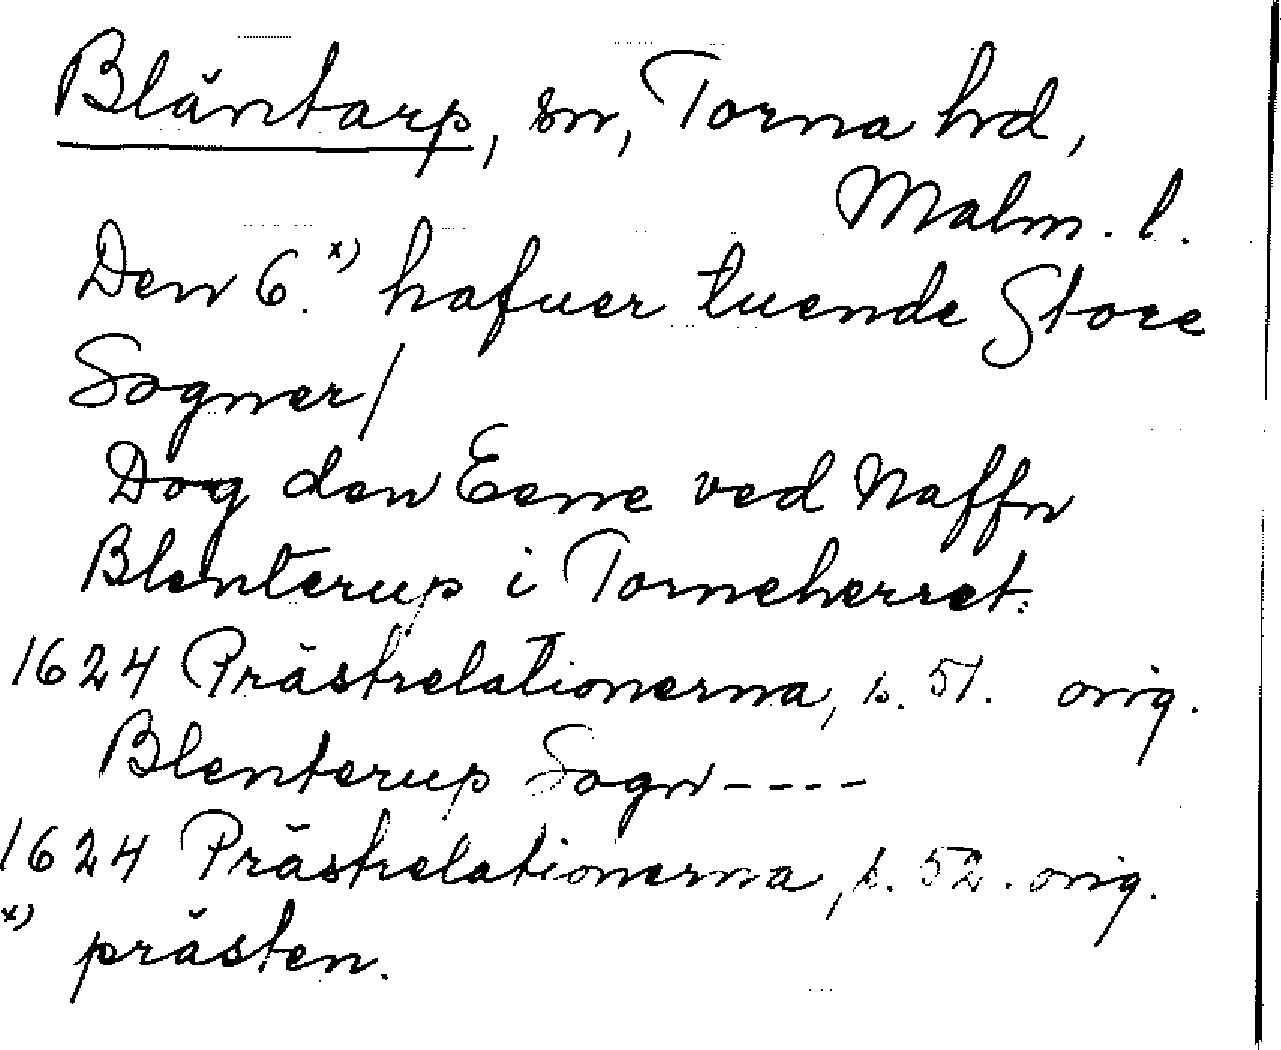 Bläntarp, sn, Torna hd,
Malm. l.
Den 6.x) hafuer tuende Store
Sogner/
Dog den Eene ved Naffn
Blenterup i Torneherret.
1624 Prästrelationerna, s. 51. orig.
Blenterup Sogn ----
1624 Prästrelationerna, s. 52. orig.
x) prästen.